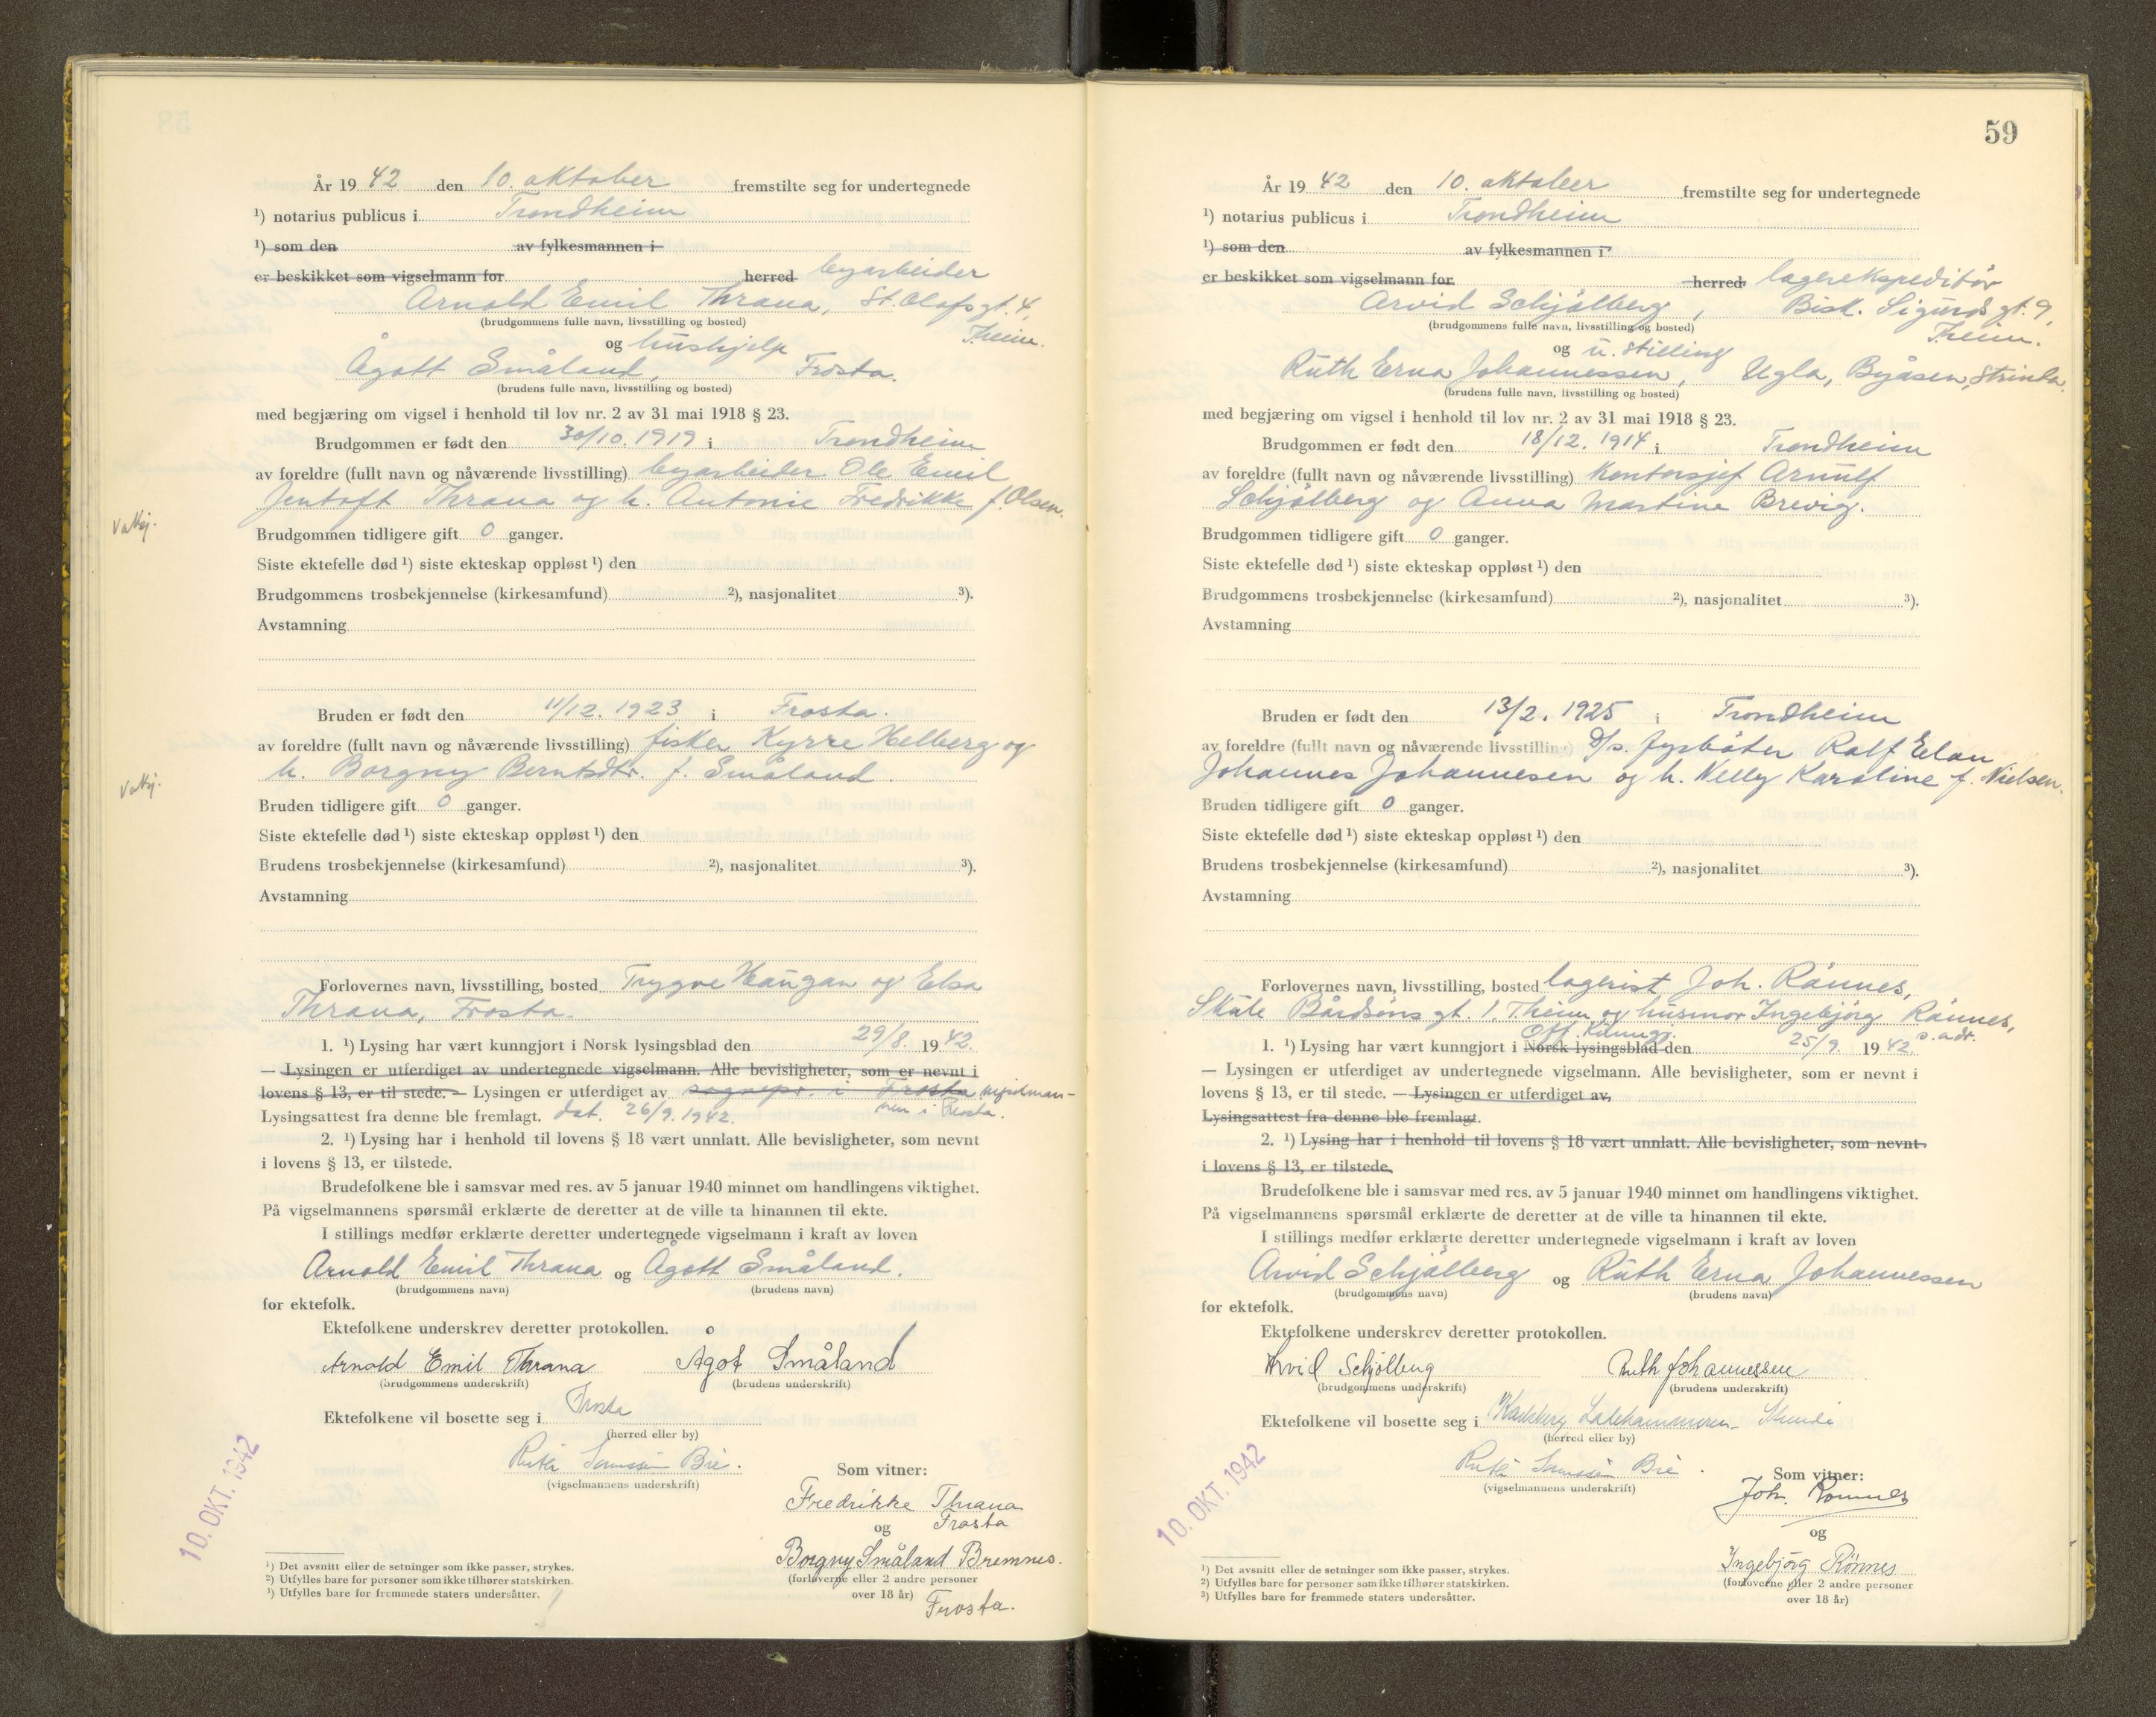 År 19 42 den 10. oktober fremstilte seg for undertegnede
¹) notarius publicus i Trondheim
¹) som den av fylkesmannen i
er beskikket som vigselmann for herred byarbeider
Arnold Emil Thrana, St. Olafsgt. 4,
(brudgommens fulle navn, livsstilling og bosted) Theim.
og hushjelp
Ågott Småland, Frosta.
(brudens fulle navn, livsstilling og bosted)
med begjæring om vigsel i henhold til lov nr. 2 av 31 mai 1918 § 23.
Brudgommen er født den 30/10. 1919 i Trondheim
av foreldre (fullt navn og nåværende livsstilling) byarbeider Ole Emil
Jentoft Thrana og h. Antonie Fredrikke f. Olsen.
Brudgommen tidligere gift 0 ganger.
Siste ektefelle død ¹) siste ekteskap oppløst ¹) den
Brudgommens trosbekjennelse (kirkesamfund) ²), nasjonalitet ³).
Avstamning
Bruden er født den 11/12. 1923 i Frosta.
av foreldre (fullt navn og nåværende livsstilling) fisker Kyrre Helberg og
h. Borgny Berntsdtr. f. Småland.
Bruden tidligere gift 0 ganger.
Siste ektefelle død ¹) siste ekteskap oppløst ¹) den
Brudens trosbekjennelse (kirkesamfund) ²), nasjonalitet ³).
Avstamning
Forlovernes navn, livsstilling, bosted Trygve Haugan og Elsa
Thrana, Frosta.
1. ¹) Lysing har vært kunngjort i Norsk lysingsblad den 29/8. 19 42.
— Lysingen er utferdiget av undertegnede vigselmann. Alle bevisligheter, som er nevnt i
lovens § 13, er til stede. — Lysingen er utferdiget av sognepr. i Frosta
Lysingsattest fra denne ble fremlagt. dat. 26/9. 1942. nen i Frosta.
2. ¹) Lysing har i henhold til lovens § 18 vært unnlatt. Alle bevisligheter, som nevnt
i lovens § 13, er tilstede.
Brudefolkene ble i samsvar med res. av 5 januar 1940 minnet om handlingens viktighet.
På vigselmannens spørsmål erklærte de deretter at de ville ta hinannen til ekte.
I stillings medfør erklærte deretter undertegnede vigselmann i kraft av loven
Arnold Emil Thrana og Ågott Småland.
(brudgommens navn) (brudens navn)
for ektefolk.
Ektefolkene underskrev deretter protokollen.
Arnold Emil Thrana Ågot Småland
(brudgommens underskrift) (brudens underskrift)
Ektefolkene vil bosette seg i Frosta
(herred eller by)
Ruth Bie.
(vigselmannens underskrift)
Som vitner:
Fredrikke Thrana
og Frosta
Borgny Småland Bremnes.
(forloverne eller 2 andre personer
over 18 år) Frosta.
10. OKT. 1942
¹) Det avsnitt eller de setninger som ikke passer, strykes.
²) Utfylles bare for personer som ikke tilhører statskirken.
³) Utfylles bare for fremmede staters undersåtter.
59
År 19 42 den 10. oktober fremstilte seg for undertegnede
¹) notarius publicus i Trondheim
¹) som den av fylkesmannen i
er beskikket som vigselmann for herred lagerekspeditör
Arvid Schjölberg, Bisk. Sigurds gt. 9,
(brudgommens fulle navn, livsstilling og bosted) Theim.
og u. stilling
Ruth Erna Johannessen, Ugla, Byåsen, Strinda.
(brudens fulle navn, livsstilling og bosted)
med begjæring om vigsel i henhold til lov nr. 2 av 31 mai 1918 § 23.
Brudgommen er født den 18/12. 1914 i Trondheim
av foreldre (fullt navn og nåværende livsstilling) kontorsjef Arnulf
Schjölberg og Anna Martine Brevig.
Brudgommen tidligere gift 0 ganger.
Siste ektefelle død ¹) siste ekteskap oppløst ¹) den
Brudgommens trosbekjennelse (kirkesamfund) ²), nasjonalitet ³).
Avstamning
Bruden er født den 13/2. 1925 i Trondheim
av foreldre (fullt navn og nåværende livsstilling) D/s. fyrböter Ralf
Johannes Johannesen og h. Nelly Karoline f. Nielsen.
Bruden tidligere gift 0 ganger.
Siste ektefelle død ¹) siste ekteskap oppløst ¹) den
Brudens trosbekjennelse (kirkesamfund) ²), nasjonalitet ³).
Avstamning
Forlovernes navn, livsstilling, bosted lagerist Joh. Rönnes,
Skule Bårdsöns gt. 1. Theim og husmor Ingebjörg Rönnes,
s. adr.
1. ¹) Lysing har vært kunngjort i Norsk lysingsblad den 25/9. 19 42.
— Lysingen er utferdiget av undertegnede vigselmann. Alle bevisligheter, som er nevnt i
lovens § 13, er til stede. — Lysingen er utferdiget av,
Lysingsattest fra denne ble fremlagt.
2. ¹) Lysing har i henhold til lovens § 18 vært unnlatt. Alle bevisligheter, som nevnt
i lovens § 13, er tilstede.
Brudefolkene ble i samsvar med res. av 5 januar 1940 minnet om handlingens viktighet.
På vigselmannens spørsmål erklærte de deretter at de ville ta hinannen til ekte.
I stillings medfør erklærte deretter undertegnede vigselmann i kraft av loven
Arvid Schjölberg og Ruth Erna Johannessen
(brudgommens navn) (brudens navn)
for ektefolk.
Ektefolkene underskrev deretter protokollen.
Arvid Schjölberg Ruth Johannessen
(brudgommens underskrift) (brudens underskrift)
Ektefolkene vil bosette seg i Ladehammeren
(herred eller by)
Ruth Bie
(vigselmannens underskrift)
Som vitner:
Joh. Rönnes
og
Ingebjörg Rönnes
(forloverne eller 2 andre personer
over 18 år)
10. OKT. 1942
¹) Det avsnitt eller de setninger som ikke passer, strykes.
²) Utfylles bare for personer som ikke tilhører statskirken.
³) Utfylles bare for fremmede staters undersåtter.